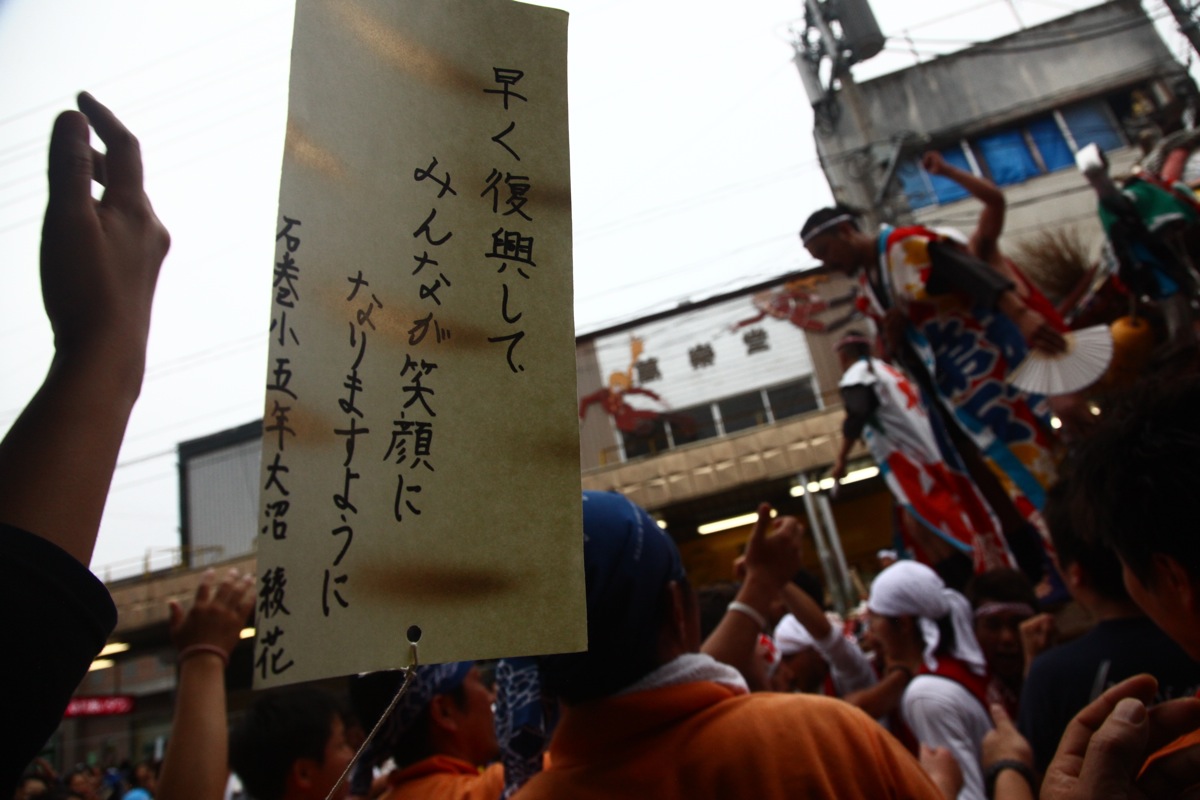 早く復興して、
みんなが笑顔に
なりますように
石巻小五年大沼 綾花